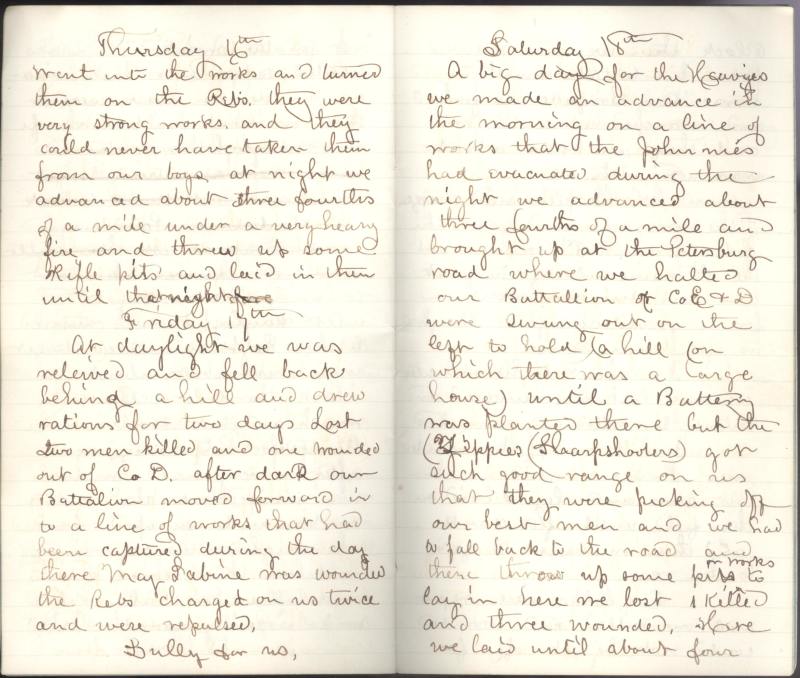 Thursday 16th
went into the works and turned
them on the Rebs. they were
very strong works. and they
could never have taken them
from our boys at night we
advanced about three fourths
of a mile under a very heavy
fire and threw up some
Rifle pits and laid in them
until that night
Friday 17th
At daylight we was
releived and fell back
behing a hill and drew
rations for two days Lost
two men killed and one wounded
out of Co D. after dark our
Battalion moved forward in
to a line of works that had
been captured during the day
there May Sabine was wounded
the Rebs charged on us twice
and were repulsed,
Bully for us,
Saturday 18th
A big day for the Heavyes
we made an advance in
the morning on a line of
works that the Johnnies
had evacuated during the
night we advanced about
three fourths of a mile and
brought up at the Petersburg
road where we halted
our Battallion of Co E & D
were swung out on the
left to hold a hill (on
which there was a large
house) until a Battery
was planted there but the
(Yippies (Sharpshooters) got
such good range on us
that they were picking off
our best men and we had
to fall back to the road and
there throw up some pits or works to
lay in here we lost 1 Killed
and three wounded, Here
we laid until about four